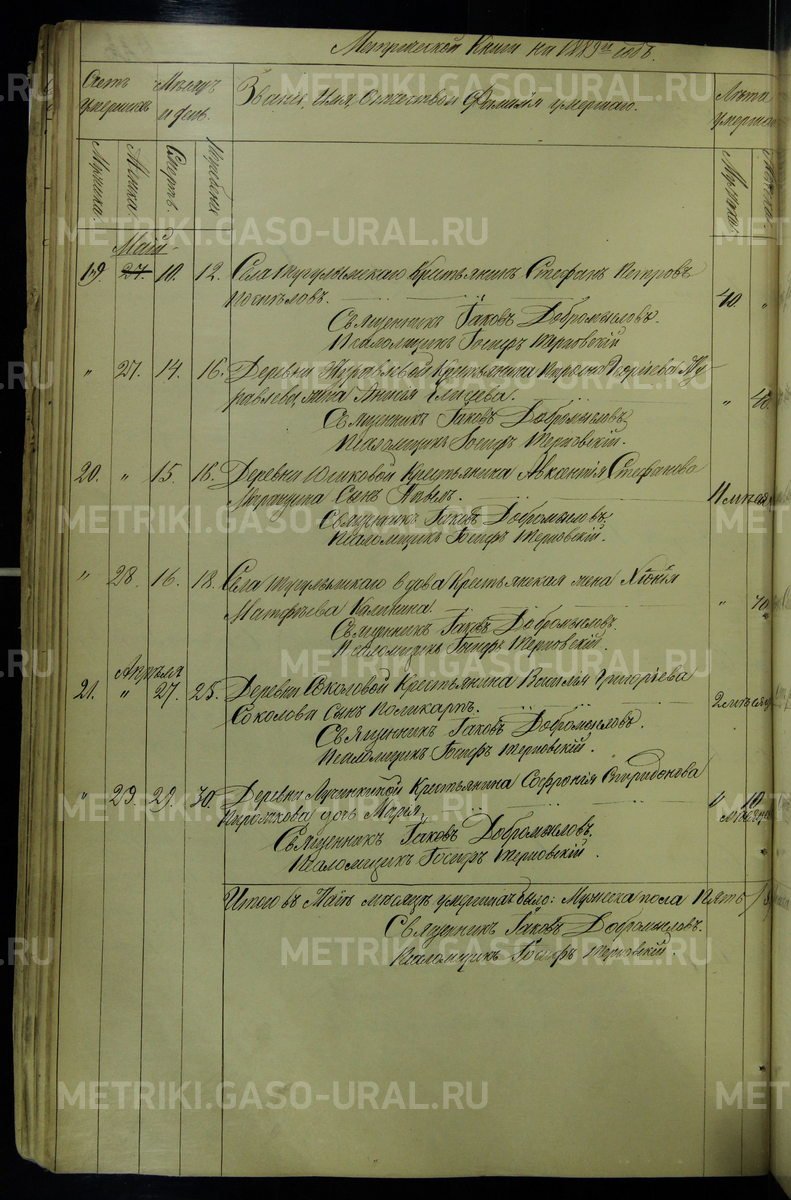 Метрической Книги на 1889й годъ.
Счетъ умершихъ
Мѣсяцъ и день.
Званіе, Имя, Отчество и Фамилія умершаго.
Лѣта умершаго
Мужска.
Женска.
Смерть.
Погребенія
Мужска.
Май
19. 27. 10. 12. Села Тугулымскаго Крестьянинъ Стефанъ Петровъ
Поспѣловъ. 40. "
Священникъ Іаковъ Добромысловъ.
Псаломщикъ Іосифъ Терновскій
" 27. 14. 16. Деревни Журавлевой Крестьянина Георгіева Жу-
равлева жена Анисія Елисеева. " 48.
Священникъ Іаковъ Добромысловъ
Псаломщикъ Іосифъ Терновскій.
20. " 15. 16. Деревни Юшковой Крестьянина Авксентія Стефанова
Сынъ
Священникъ Іаковъ Добромысловъ
Псаломщикъ Іосифъ Терновскій.
" 28. 16. 18. Села Тугулымскаго вдова Крестьянская жена Хіонія
Матфѣева Калинина. " 70.
Священникъ Іаковъ Добромысловъ
Псаломщикъ Іосифъ Терновскій.
Апрѣля
21. " 27. 25. Деревни Соколовой Крестьянина Василія Григорьева
Соколова Сынъ Поликарпъ.
Священникъ Іаковъ Добромысловъ.
Псаломщикъ Іосифъ Терновскій.
" 29. 29. 30. Деревни Лучинкиной Крестьянина Софронія Спиридонова
дочь Марія. " 10 мѣсяц
Священникъ Іаковъ Добромысловъ.
Псаломщикъ Іосифъ Терновскій.
Итого въ Маѣ мѣсяцѣ умершихъ было: Мужеска пола Пять
Священникъ Іаковъ Добромысловъ.
Псаломщикъ Іосифъ Терновскій.
METRIKI.GASO-URAL.RU